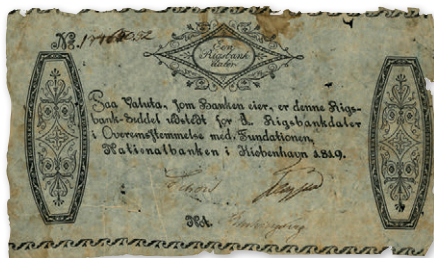 No.
Een
Rigsbank
daler
Paa Valuta, som Banken eier, er denne Rigs-
bank-Seddel udstedt for 1. Rigsbankdaler
i Overensstemmelse med Fundationen.
Nationalbanken i Kiøbenhavn 1819.
Not.